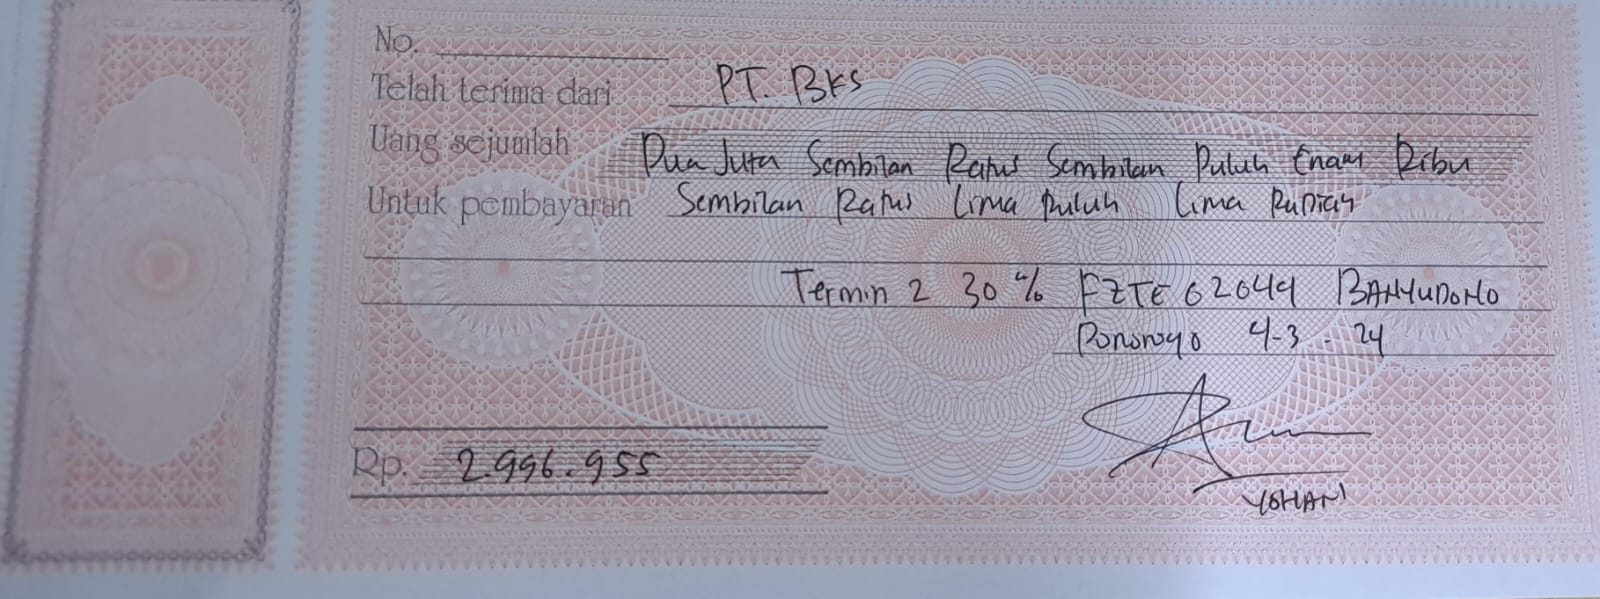 No.
Telah terima dari PT. BKS
Uang sejumlah Dua Juta Sembilan Ratus Sembilan Puluh Enam Ribu
Untuk pembayaran Sembilan Ratus Lima Puluh Lima Rupiah
Termin 2 30 % FZTE 62649 BANYUDONO
Ponorogo 4-3-24
Rp. 2.996.955
YOHAN